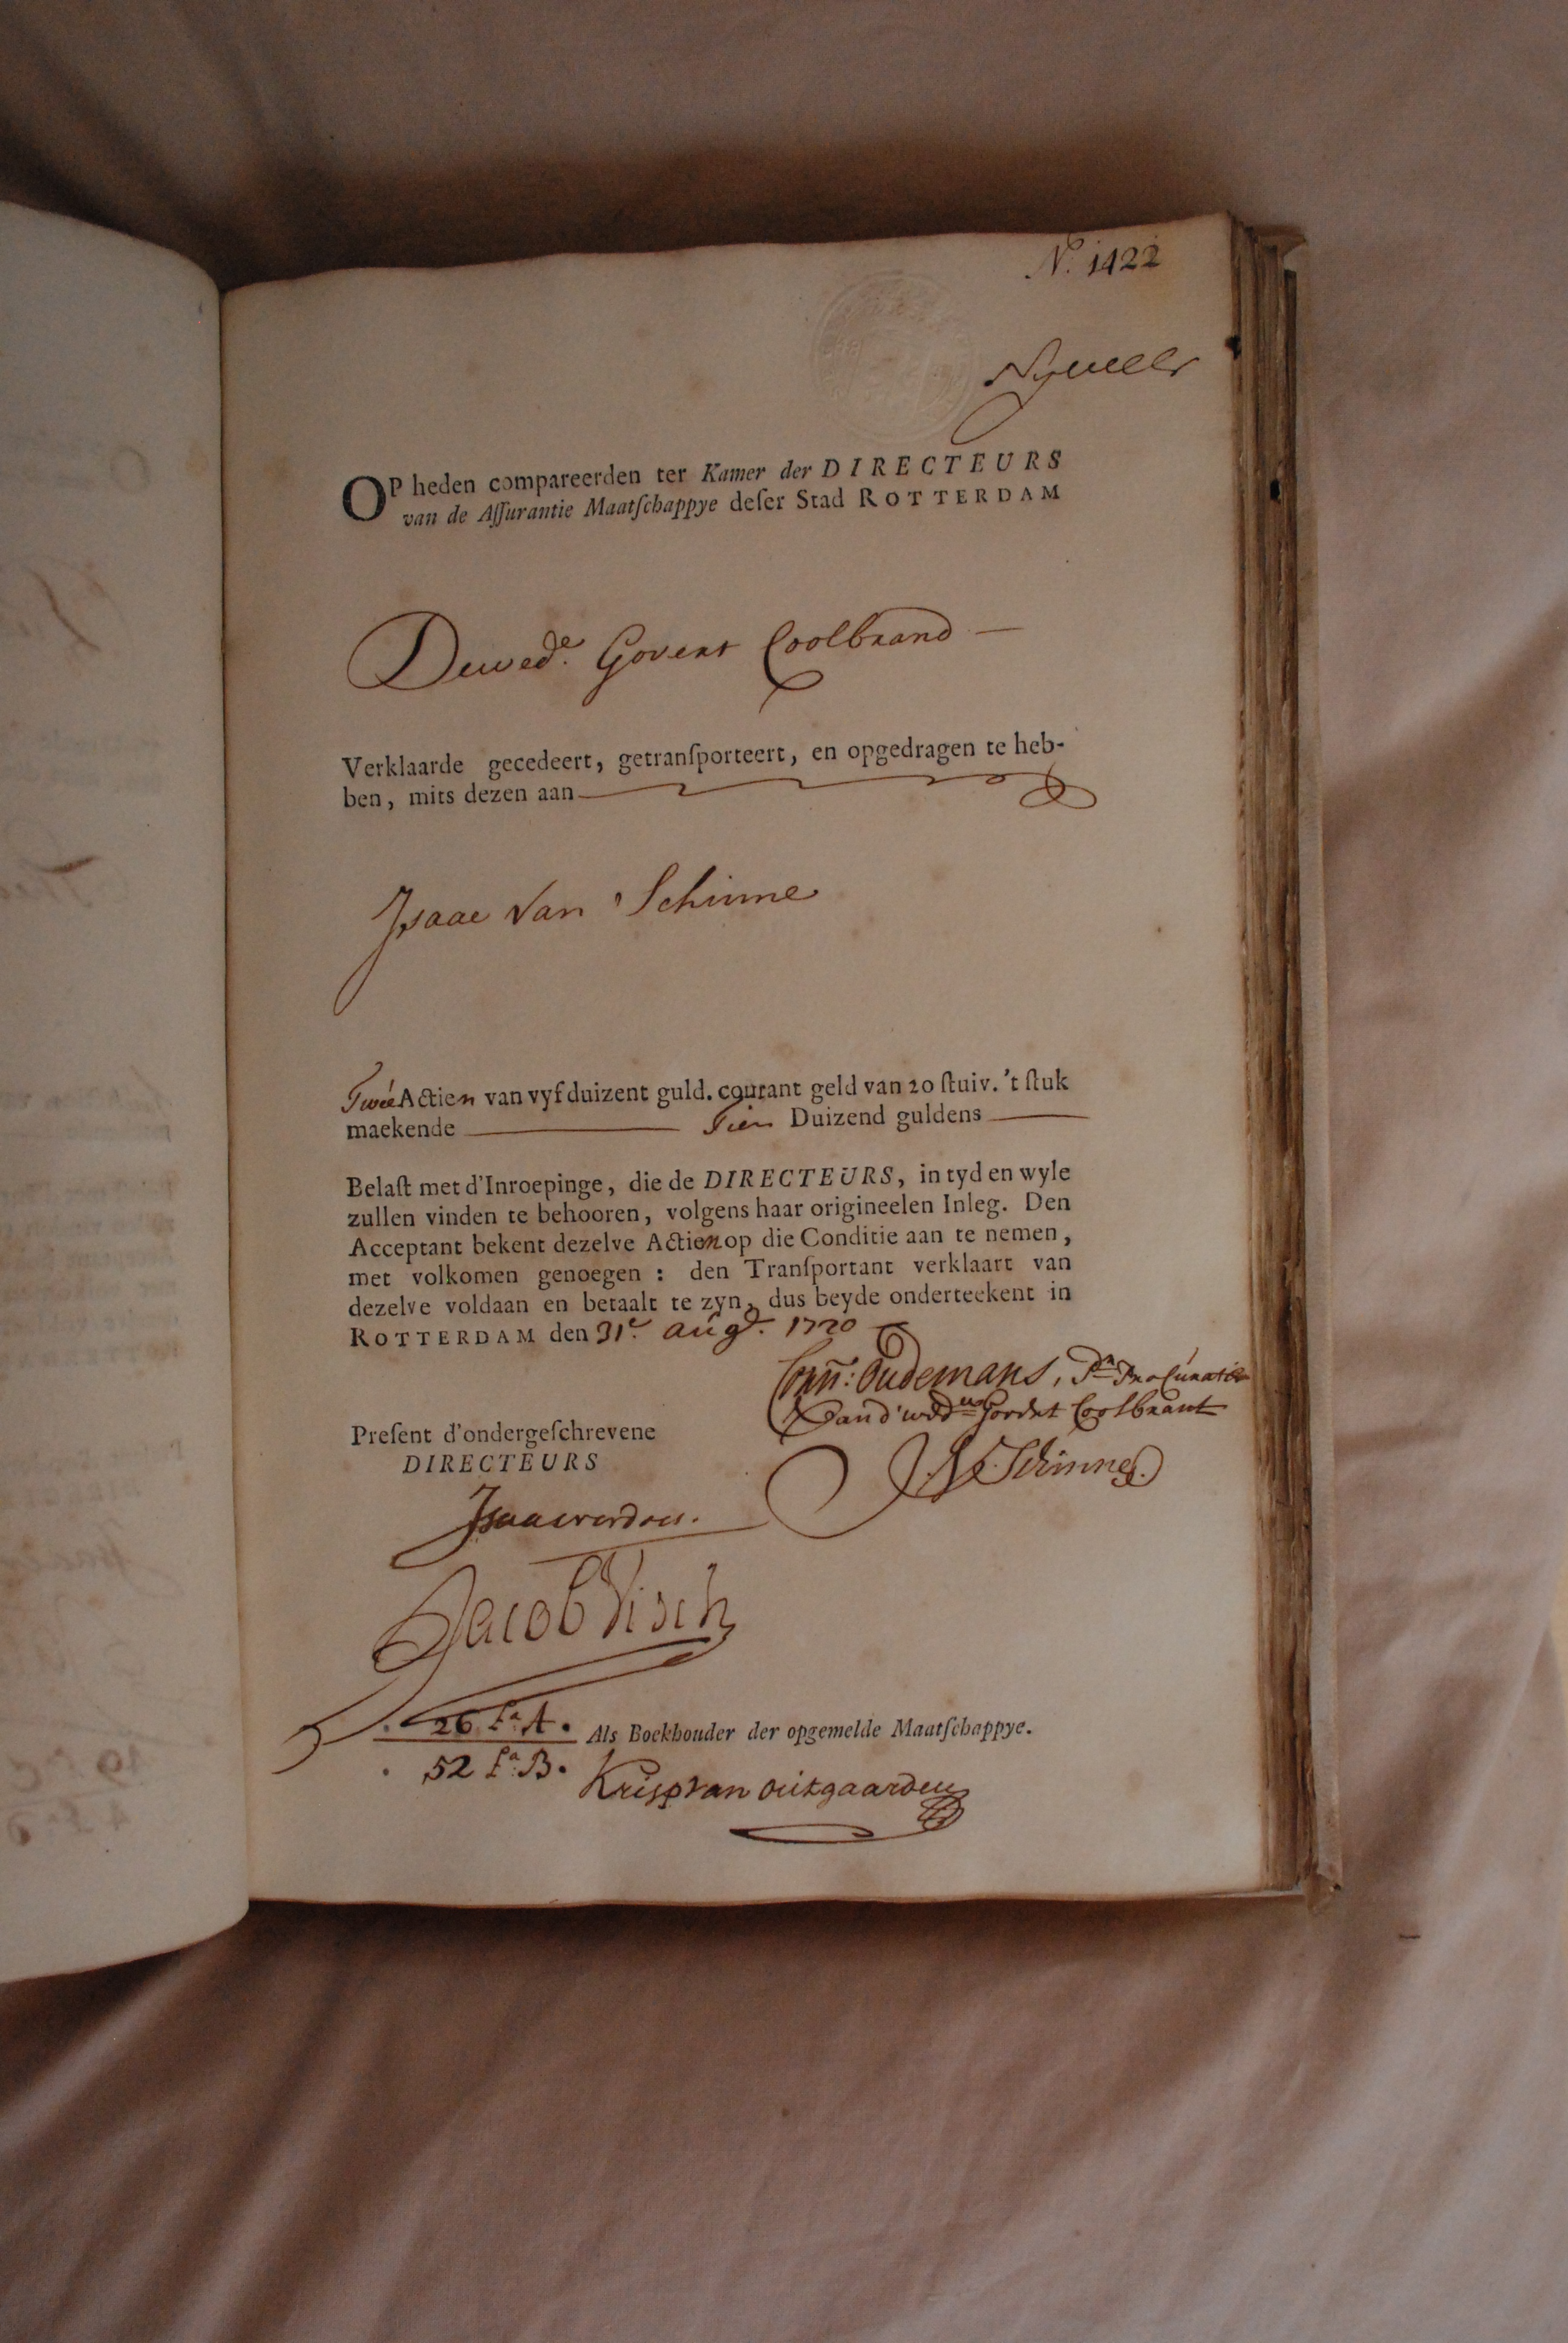 N.º 1422
OP heden compareerden ter Kamer der DIRECTEURS
van de Aſſurantie Maatſchappye deſer Stad ROTTERDAM
De wed.e Govert Coolbrand
Verklaarde gecedeert, getranſporteert, en opgedragen te heb-
ben, mits dezen aan
Isaac van Schinne
Twee Actien van vyf duizent guld. courant geld van 20 ſtuiv. 't ſtuk
maekende Tien Duizend guldens
Belaſt met d'Inroepinge, die de DIRECTEURS, in tyd en wyle
zullen vinden te behooren, volgens haar origineelen Inleg. Den
Acceptant bekent dezelve Actien op die Conditie aan te nemen,
met volkomen genoegen : den Tranſportant verklaart van
dezelve voldaan en betaalt te zyn, dus beyde onderteekent in
ROTTERDAM den 31.e aug.o 1720
Oudemans, Pr Procuratie
van d'wed Govert Coolbrant
Preſent d'ondergeſchrevene
DIRECTEURS
J. V. Schinne
Jacob Visch
26 f.a A.
Als Boekhouder der opgemelde Maatſchappye.
52 f.a B.
Krisp van outgaarden